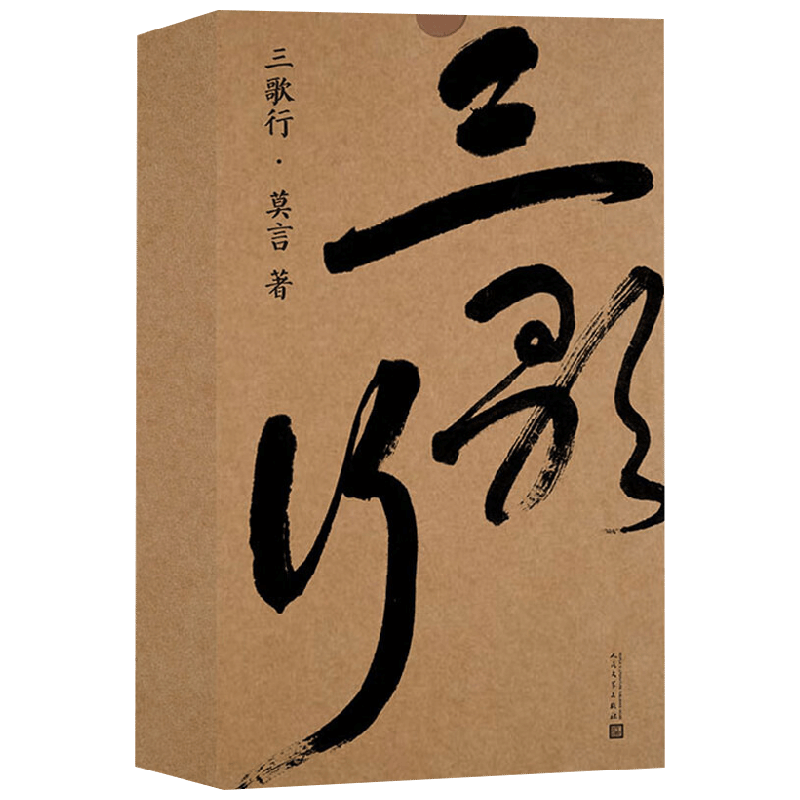 三歌行·莫言 著
三歌行
人民文学出版社